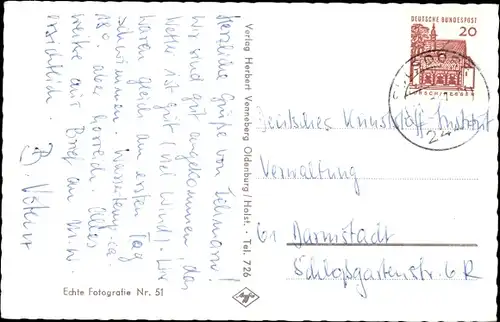 Herzliche Grüße von Fehmarn!
Wir sind gut angekommen, das
Wetter ist gut (viel Wind). Wir
waren gleich am ersten Tag
schwimmen. Wassertemp. ca.
18°. aber herrlich. Alles
weitere aus Brief an M.W.
ersichtlich.
B.
Echte Fotografie Nr. 51
Verlag Herbert Venneberg Oldenburg/Holst. Tel. 726
DEUTSCHE BUNDESPOST
20
LORSCH/HESSEN
24
Deutsches Kunststoff Institut
Verwaltung
61 Darmstadt
Schloßgartenstr. 6 R